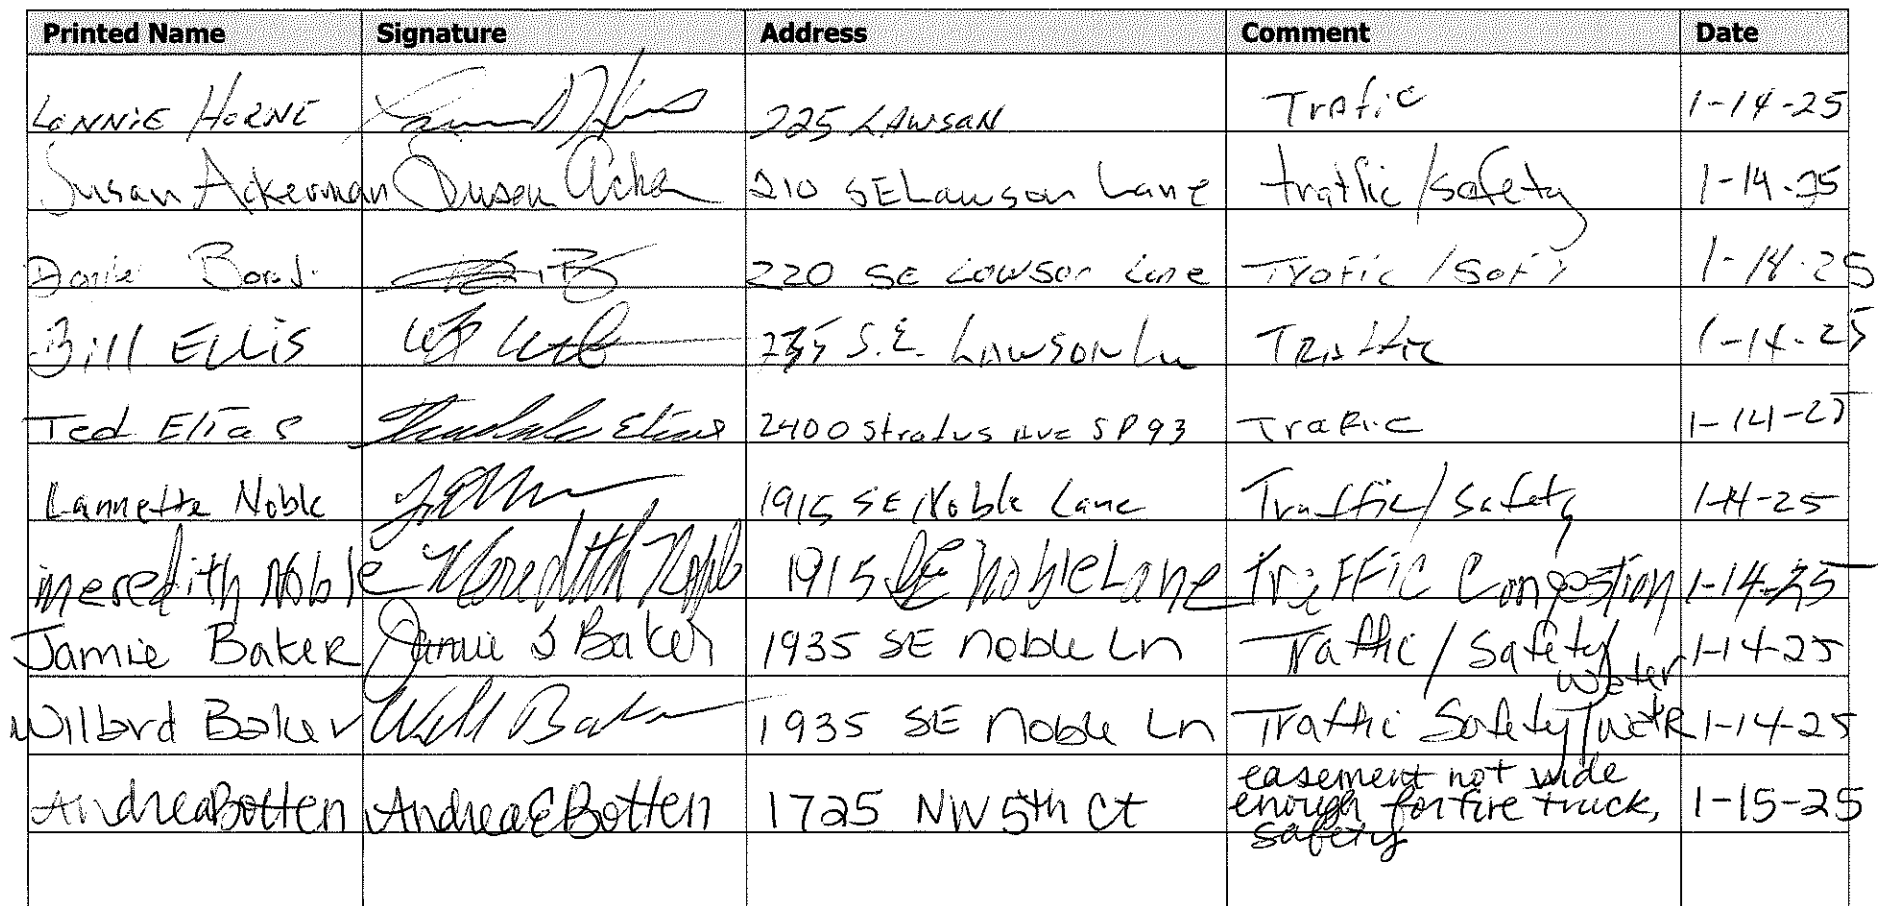 Printed Name Signature Address Comment Date
LONNIE HORNE 225 LAWSAN Trafic 1-14-25
Susan Ackerman Susan Acker 210 SE Lawson Lane traffic/safety 1-14-25
220 SE Lawson Lane Trafic / 1-14-25
Bill ELLIS S.E. LAWSON Ln TRAffic 1-14-25
Ted Elias Elias 2400 Stratus Ave SP 93 Trafic 1-14-25
Lannette Noble 1915 SE Noble Lane Traffic/Safety 1-14-25
meredith Noble Meredith Noble 1915 SE Noble Lane Traffic Congestion 1-14-25
Jamie Baker Jamie S Baker 1935 SE Noble Ln Traffic/Safety/ 1-14-25
water
Willard Baker Will Baker 1935 SE Noble Ln Traffic Safety/watR 1-14-25
Andrea Botten Andrea E Botten 1725 NW 5th Ct easement not wide 1-15-25
enough for fire truck,
safety